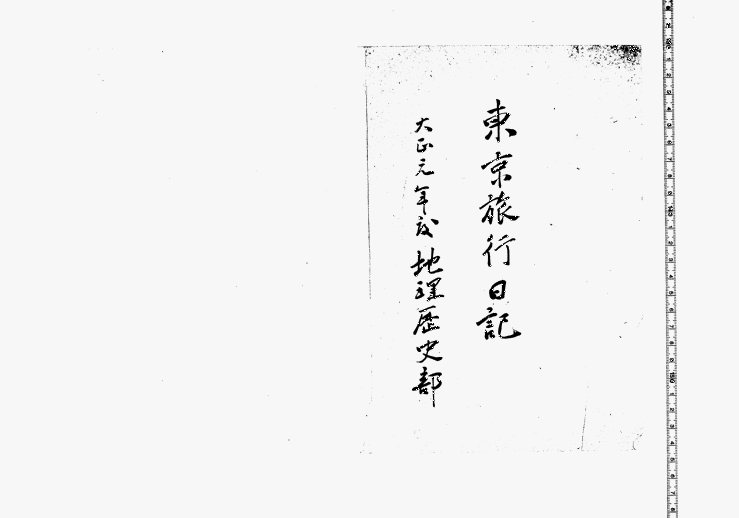 東京旅行日記
大正元年度 地理歴史部